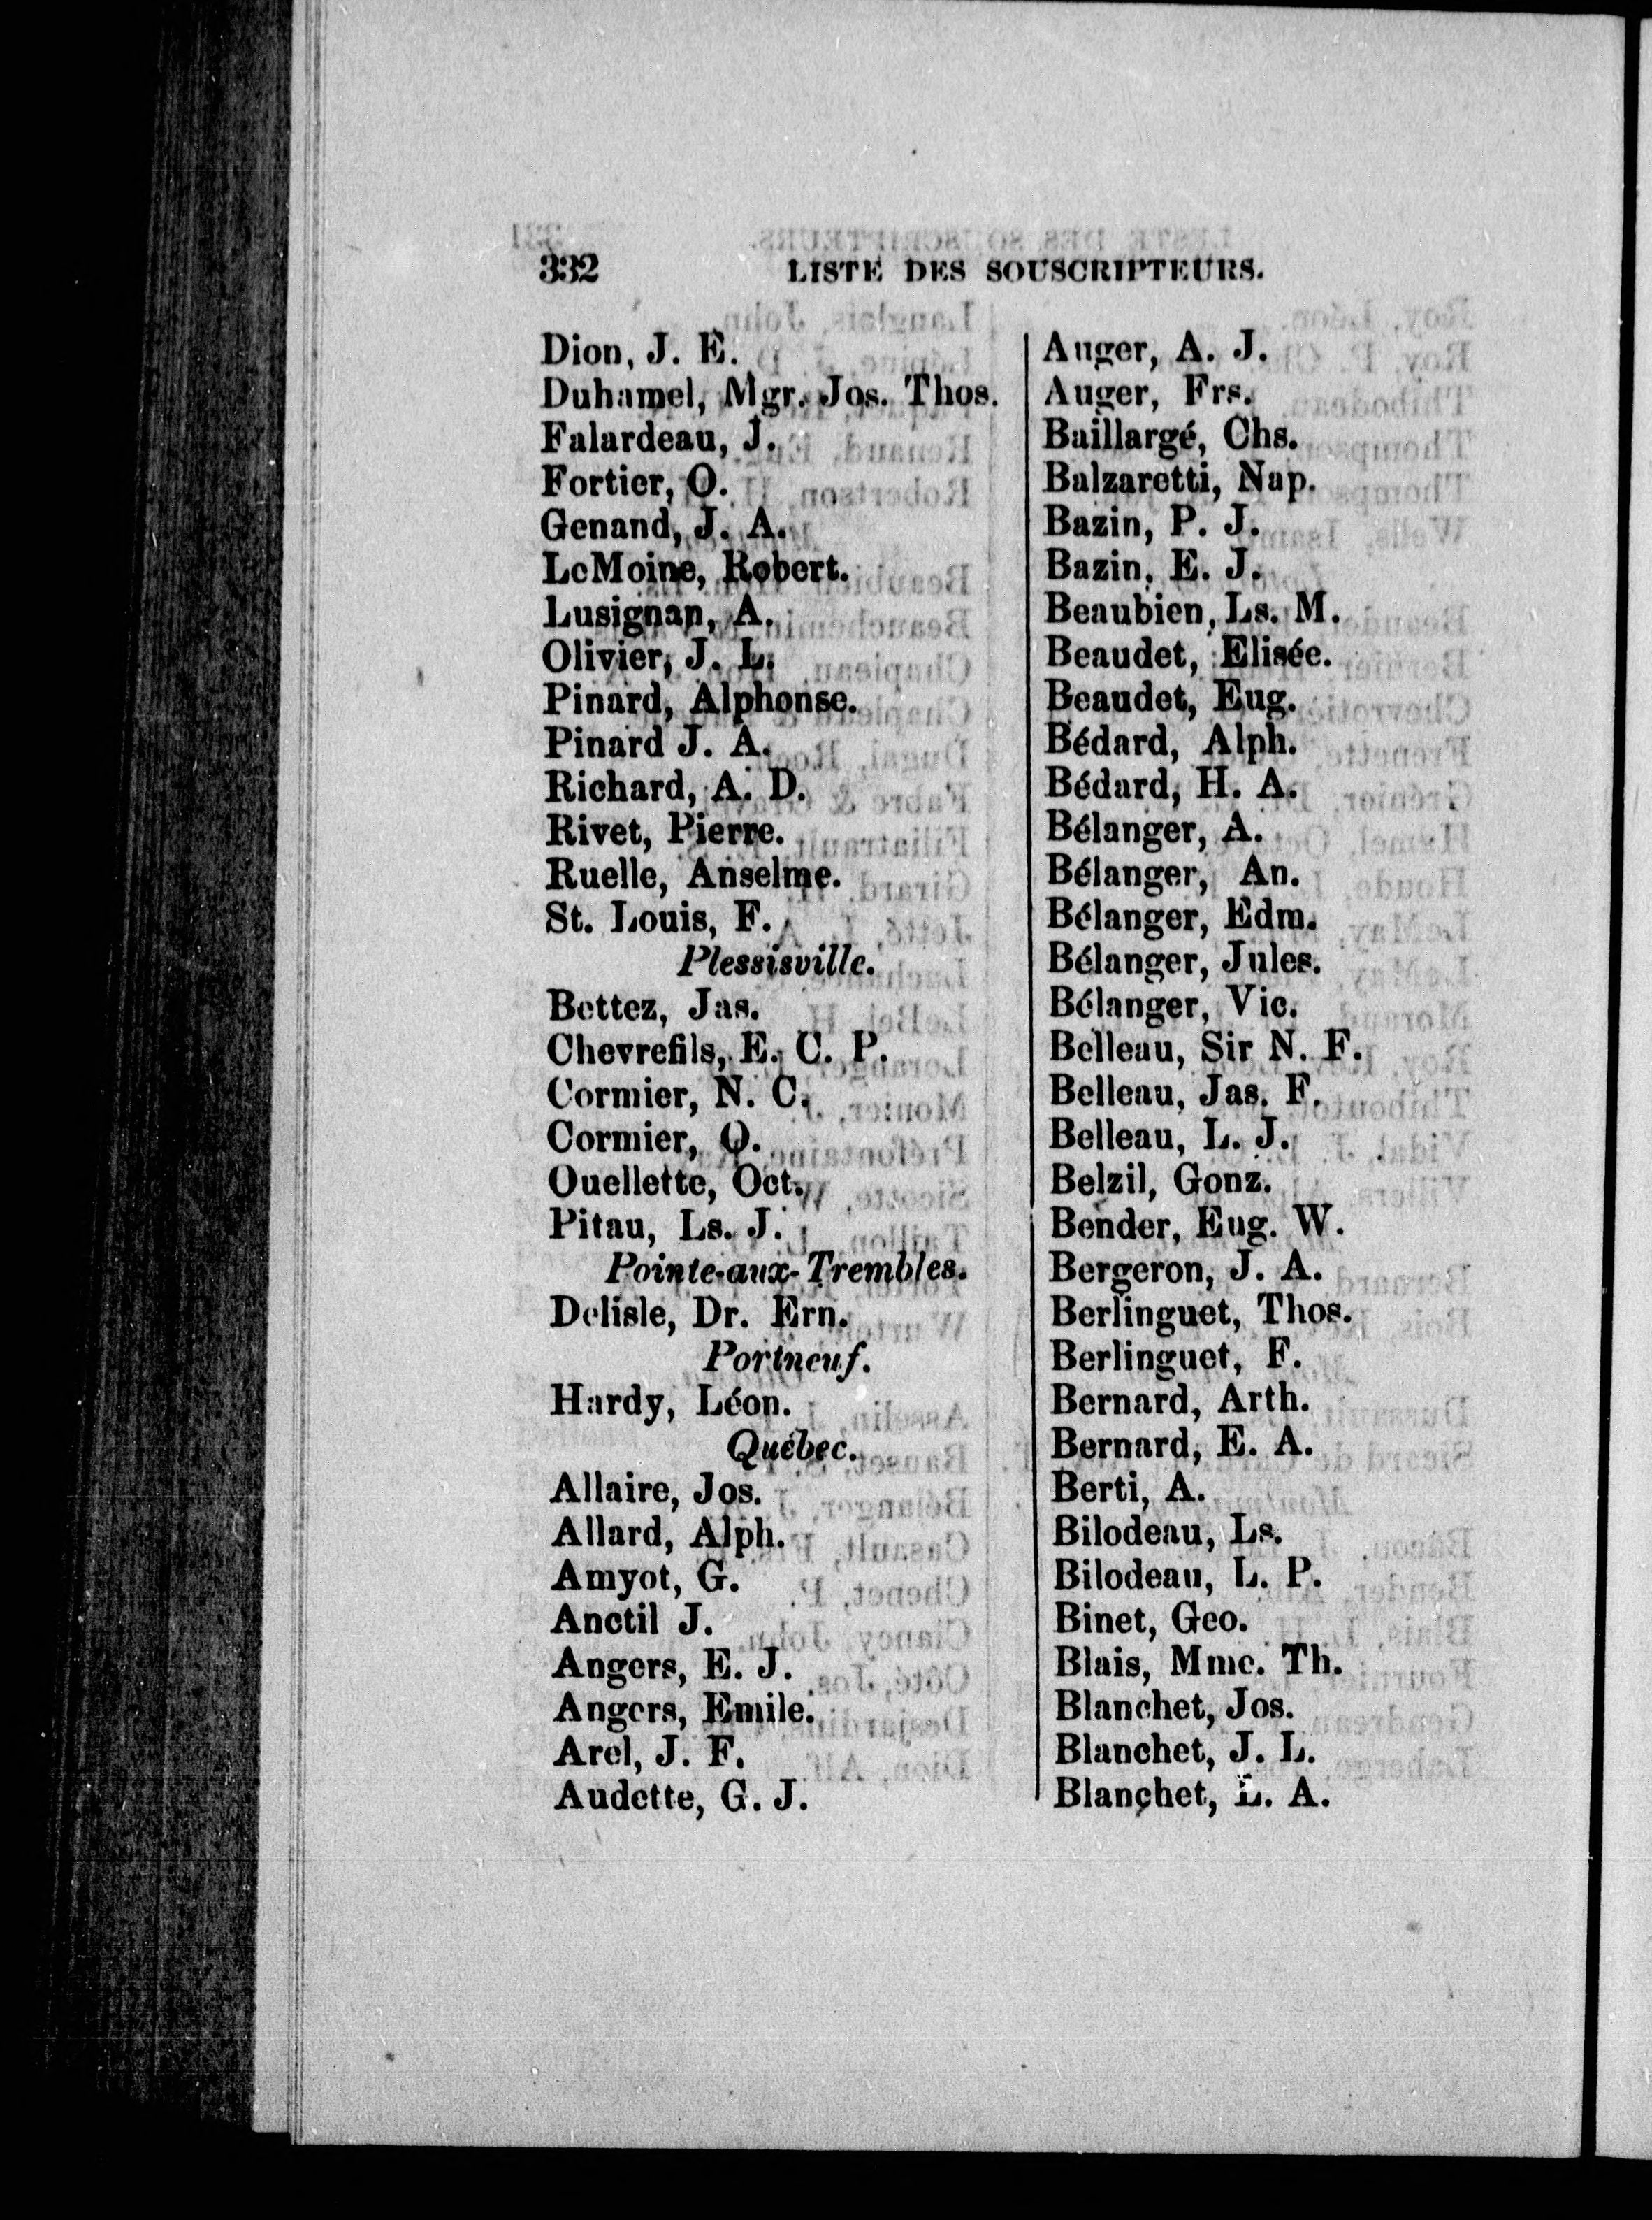 332 LISTE DES SOUSCRIPTEURS.
Dion, J. E.
Duhamel, Mgr. Jos. Thos.
Falardeau, J.
Fortier, O.
Genand, J. A.
LeMoine, Robert.
Lusignan, A.
Olivier, J. L.
Pinard, Alphonse.
Pinard J. A.
Richard, A. D.
Rivet, Pierre.
Ruelle, Anselme.
St. Louis, F.
Plessisville.
Bettez, Jas.
Chevrefils, E. C. P.
Cormier, N. C.
Cormier, O.
Ouellette, Oct.
Pitau, Ls. J.
Pointe-aux-Trembles.
Delisle, Dr. Ern.
Portneuf.
Hardy, Léon.
Québec.
Allaire, Jos.
Allard, Alph.
Amyot, G.
Anctil J.
Angers, E. J.
Angers, Emile.
Arel, J. F.
Audette, G. J.
Auger, A. J.
Auger, Frs.
Baillargé, Chs.
Balzaretti, Nap.
Bazin, P. J.
Bazin, E. J.
Beaubien, Ls. M.
Beaudet, Elisée.
Beaudet, Eug.
Bédard, Alph.
Bédard, H. A.
Bélanger, A.
Bélanger, An.
Bélanger, Edm.
Bélanger, Jules.
Bélanger, Vic.
Belleau, Sir N. F.
Belleau, Jas. F.
Belleau, L. J.
Belzil, Gonz.
Bender, Eug. W.
Bergeron, J. A.
Berlinguet, Thos.
Berlinguet, F.
Bernard, Arth.
Bernard, E. A.
Berti, A.
Bilodeau, Ls.
Bilodeau, L. P.
Binet, Geo.
Blais, Mme. Th.
Blanchet, Jos.
Blanchet, J. L.
Blanchet, L. A.